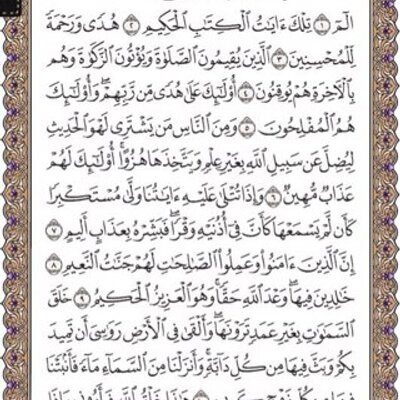 الٓمٓ ١ تِلْكَ ءَايَٰتُ ٱلْكِتَٰبِ ٱلْحَكِيمِ ٢ هُدًى وَرَحْمَةً
لِّلْمُحْسِنِينَ ٣ ٱلَّذِينَ يُقِيمُونَ ٱلصَّلَوٰةَ وَيُؤْتُونَ ٱلزَّكَوٰةَ وَهُم
بِٱلْءَاخِرَةِ هُمْ يُوقِنُونَ ٤ أُو۟لَٰٓئِكَ عَلَىٰ هُدًى مِّن رَّبِّهِمْ ۖ وَأُو۟لَٰٓئِكَ
هُمُ ٱلْمُفْلِحُونَ ٥ وَمِنَ ٱلنَّاسِ مَن يَشْتَرِى لَهْوَ ٱلْحَدِيثِ
لِيُضِلَّ عَن سَبِيلِ ٱللَّهِ بِغَيْرِ عِلْمٍ وَيَتَّخِذَهَا هُزُوًا ۚ أُو۟لَٰٓئِكَ لَهُمْ
عَذَابٌ مُّهِينٌ ٦ وَإِذَا تُتْلَىٰ عَلَيْهِ ءَايَٰتُنَا وَلَّىٰ مُسْتَكْبِرًا
كَأَن لَّمْ يَسْمَعْهَا كَأَنَّ فِىٓ أُذُنَيْهِ وَقْرًا ۖ فَبَشِّرْهُ بِعَذَابٍ أَلِيمٍ ٧
إِنَّ ٱلَّذِينَ ءَامَنُوا۟ وَعَمِلُوا۟ ٱلصَّٰلِحَٰتِ لَهُمْ جَنَّٰتُ ٱلنَّعِيمِ ٨
خَٰلِدِينَ فِيهَا ۖ وَعْدَ ٱللَّهِ حَقًّا ۚ وَهُوَ ٱلْعَزِيزُ ٱلْحَكِيمُ ٩ خَلَقَ
ٱلسَّمَٰوَٰتِ بِغَيْرِ عَمَدٍ تَرَوْنَهَا ۖ وَأَلْقَىٰ فِى ٱلْأَرْضِ رَوَٰسِىَ أَن تَمِيدَ
بِكُمْ وَبَثَّ فِيهَا مِن كُلِّ دَآبَّةٍ ۚ وَأَنزَلْنَا مِنَ ٱلسَّمَآءِ مَآءً فَأَنۢبَتْنَا
فِيهَا مِن كُلِّ زَوْجٍ كَرِيمٍ هَٰذَا خَلْقُ ٱللَّهِ فَأَرُونِى مَاذَا